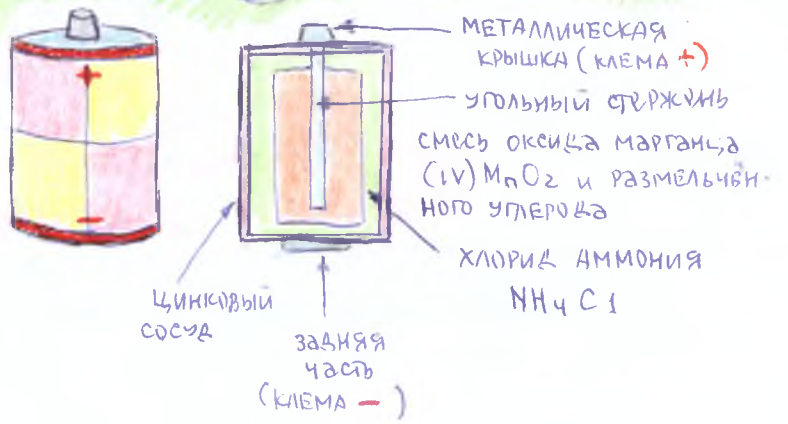 +
−
МЕТАЛЛИЧЕСКАЯ
КРЫШКА (КЛЕМА +)
УГОЛЬНЫЙ СТЕРЖЕНЬ
СМЕСЬ ОКСИДА МАРГАНЦА
(IV) MnO2 И РАЗМЕЛЬЧЕН-
НОГО УГЛЕРОДА
ХЛОРИД АММОНИЯ
NH4Cl
ЦИНКОВЫЙ
СОСУД
ЗАДНЯЯ
ЧАСТЬ
(КЛЕМА −)